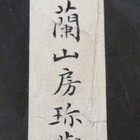 蘭山房珎